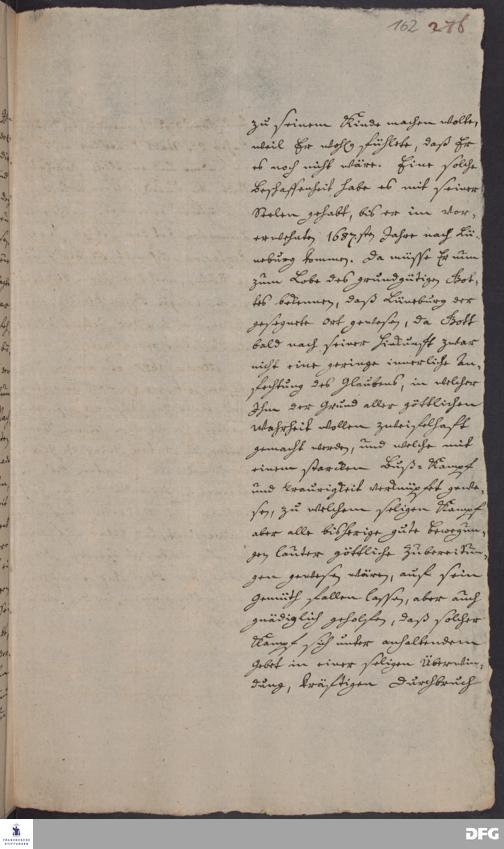 162 276
zu seinem Kinde machen wolte,
weil Er wohl fühlete, daß Er
es noch nicht wäre. Eine solche
Beschaffenheit habe es mit seiner
Seelen gehabt, bis er im vor-
erwehnten 1687sten Jahre nach Lü-
neburg kommen. Da müsse Er nun
zum Lobe des grundgütigen Got-
tes bekennen, daß Lüneburg der
gesegnete Ort gewesen, da Gott
bald nach seiner Hinkunfft zwar
nicht eine geringe innerliche An-
fechtung des Glaubens, in welcher
Ihm der Grund aller göttlichen
Wahrheit wollen zweifelhafft
gemacht werden, und welche mit
einem starcken Buß-Kampf
und Traurigkeit verknüpfet gewe-
sen, zu welchem seligen Kampf
aber alle bisherige gute Bewegun-
gen lauter göttliche Zubereitun-
gen gewesen wären, auf sein
Gemüth fallen lassen, aber auch
gnädiglich geholfen, daß solcher
Kampf sich unter anhaltendem
Gebet in einer seligen Überwin-
dung, kräftigen Durchbruch
FRANCKESCHE STIFTUNGEN
DFG